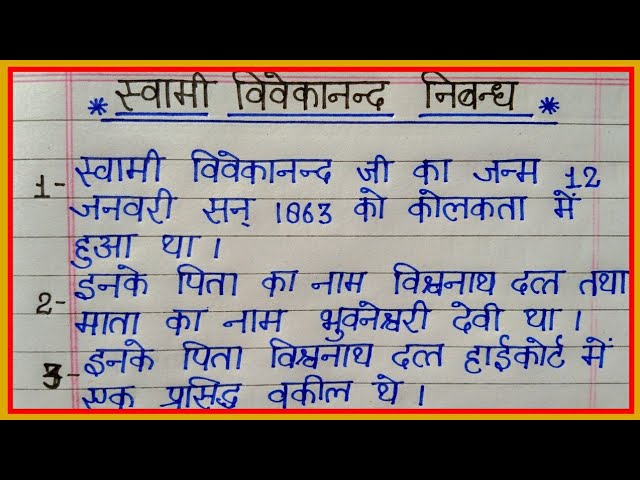 * स्वामी विवेकानन्द निबन्ध *
1- स्वामी विवेकानन्द जी का जन्म 12
जनवरी सन् 1863 को कोलकता में
हुआ था ।
2- इनके पिता का नाम विश्वनाथ दत्त तथा
माता का नाम भुवनेश्वरी देवी था ।
3- इनके पिता विश्वनाथ दत्त हाईकोर्ट में
एक प्रसिद्ध वकील थे ।